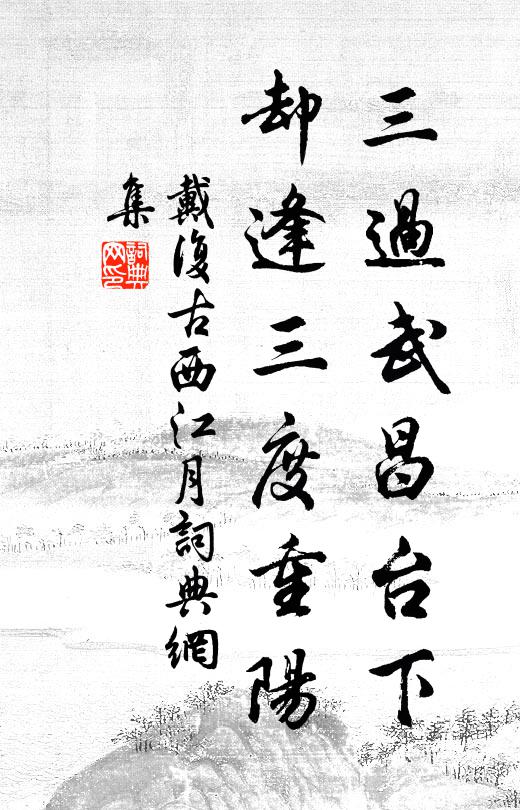 三過武昌台下
却逢三度重陽
戴復古西江月詞典網
集
詞典
网印